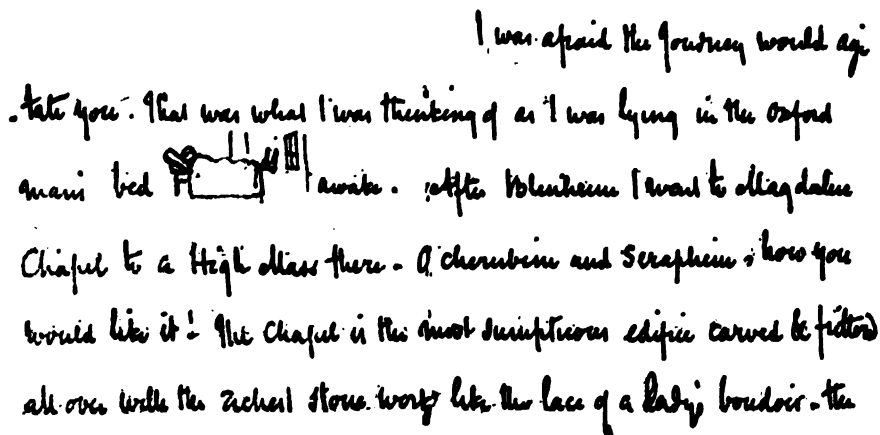 I was afraid the journey would agi
-tate you. That was what I was thinking of as I was lying in the Oxford
man's bed awake. After Blenheim I went to Magdalen
Chapel to a High Mass there. O cherubim and seraphim, how you
would like it! The Chapel is the most sumptuous edifice carved & fretted
all over with the richest stone work like the lace of a lady's boudoir. the